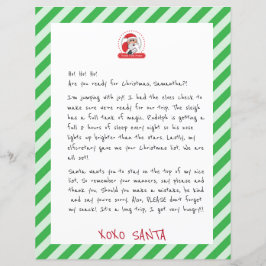 Ho! Ho! Ho!
Are you ready for Christmas, Samantha?!
I'm jumping with joy! I had the elves check to
make sure we're ready for our trip. The sleigh
has a full tank of magic. Rudolph is getting a
full 8 hours of sleep every night so his nose
lights up brighter than the stars. Lastly, my
elf secretary gave me your Christmas list. We are
all set!
Santa wants you to stay on the top of my nice
list. So remember your manners, say please and
thank you. Should you make a mistake, be kind
and say you're sorry. Also, PLEASE don't forget
my snack! It's a long trip, I get very hungry!!
XOXO SANTA